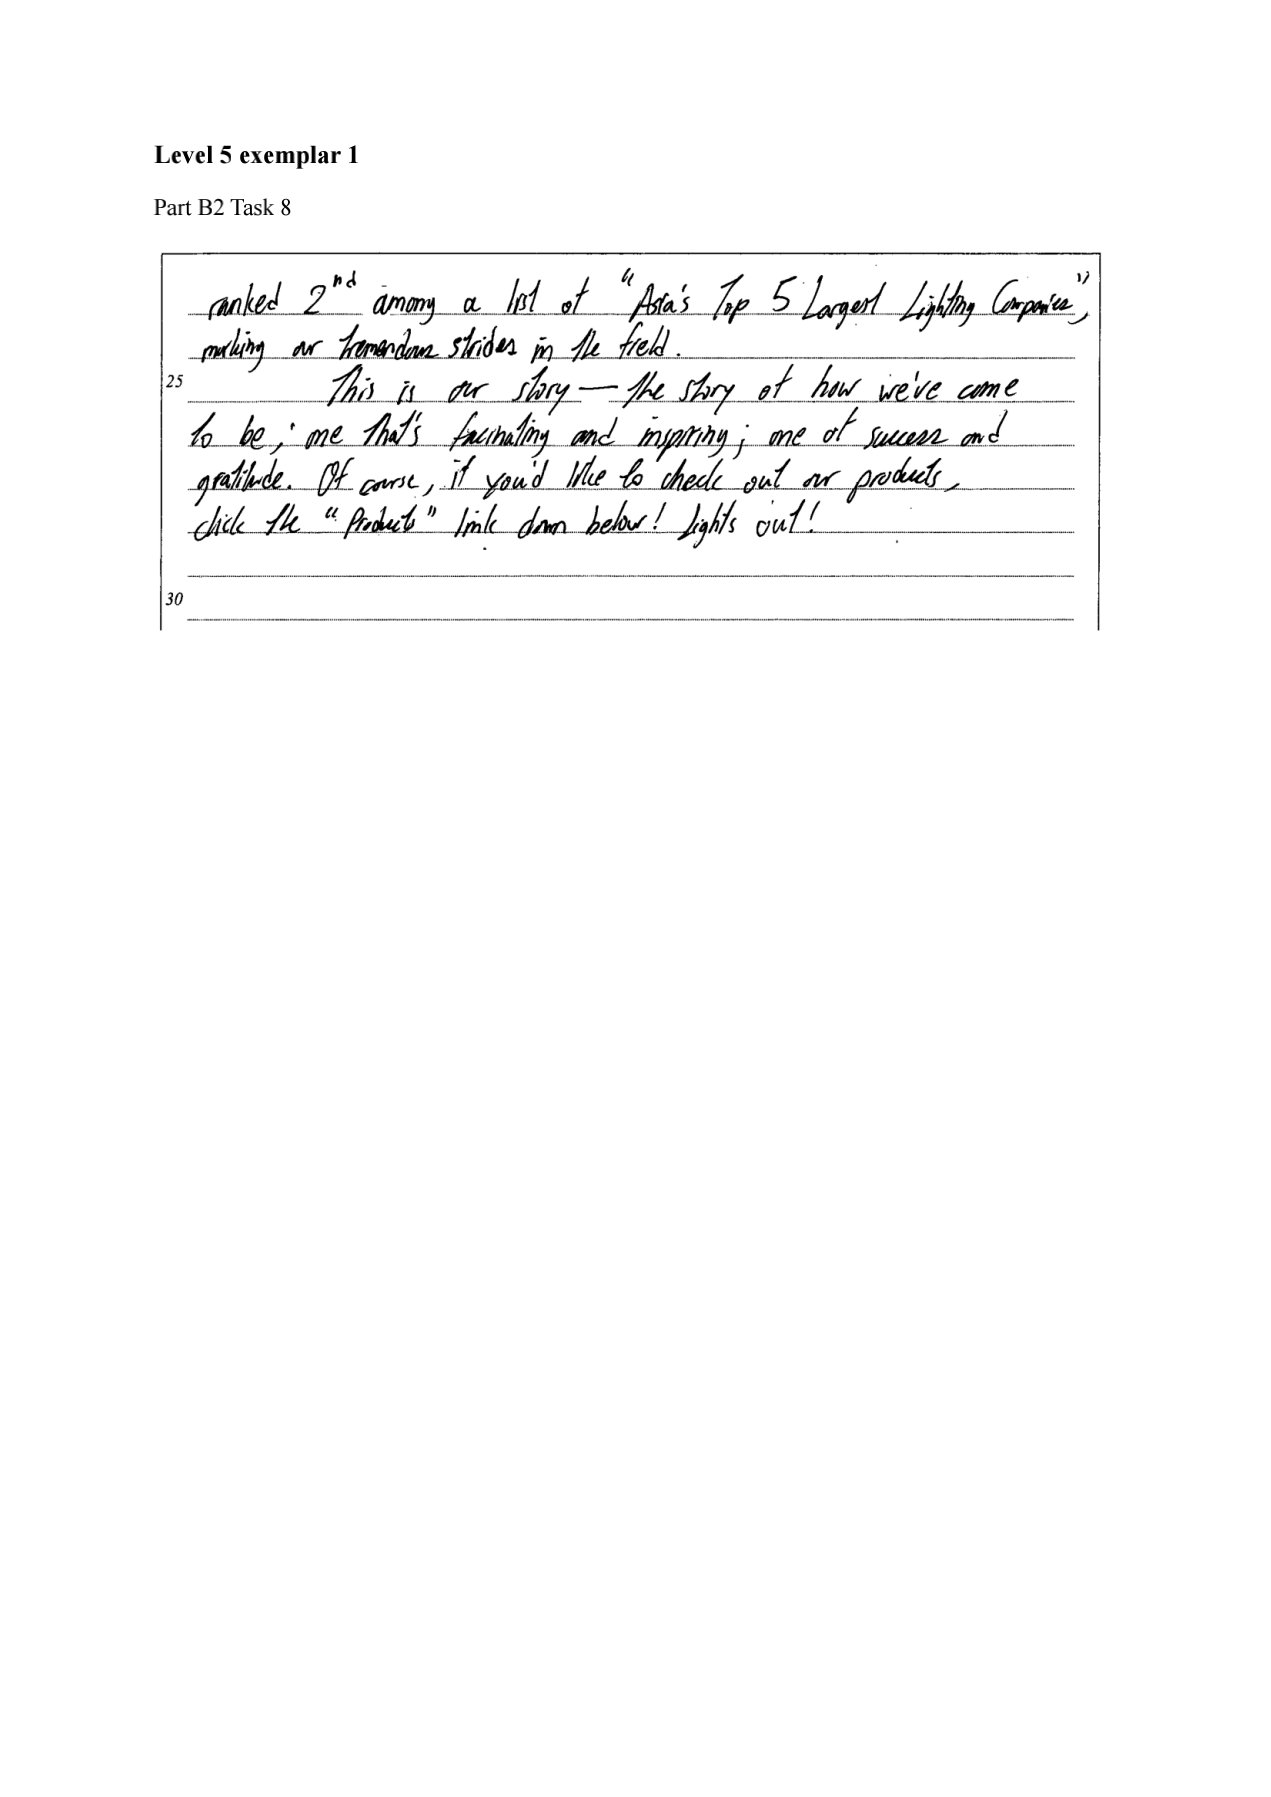 Level 5 exemplar 1
Part B2 Task 8
ranked 2nd among a list of "Asia's Top 5 Largest Lighting Companies",
marking our tremendous strides in the field.
25 This is our story — the story of how we've come
to be; one that's facinating and inspiring; one of success and
gratitude. Of course, if you'd like to check out our products,
click the "Products" link down below! Lights out!
30